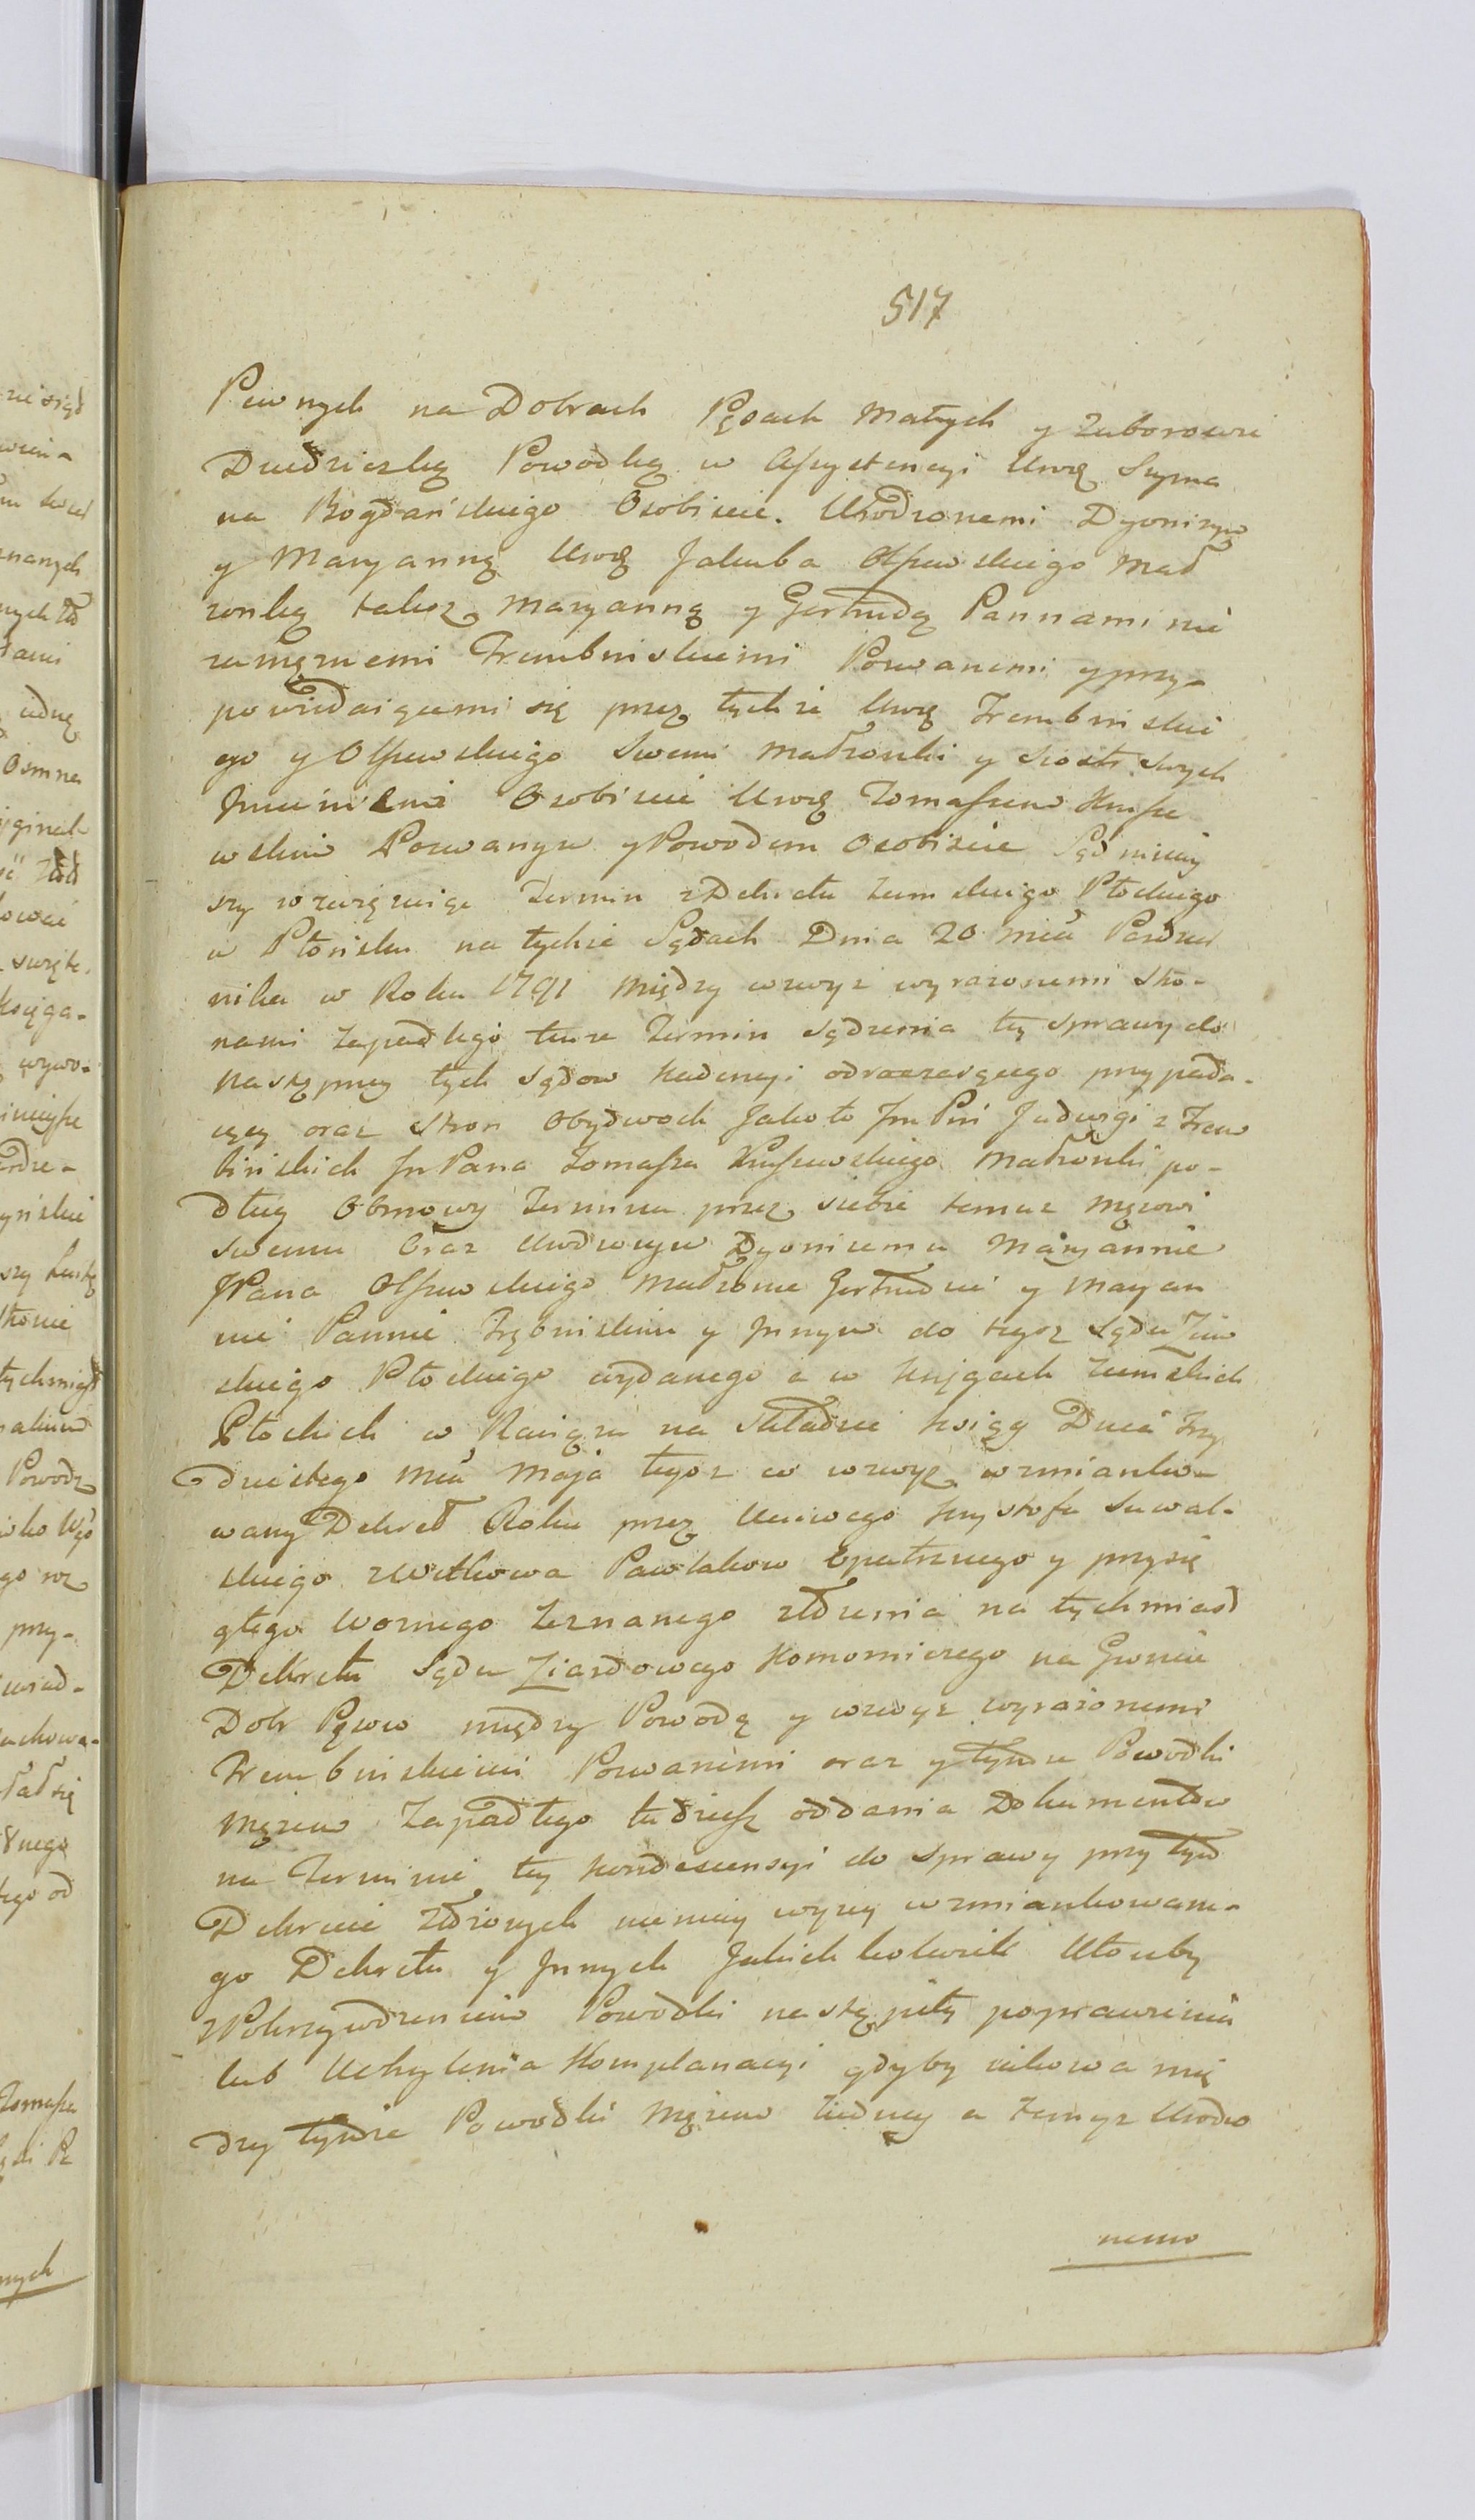 517
Pewnych na Dobrach Pęsach Małych y Zaborowie
Dziedziczką Powodką w Assystencyi Urogo Szymo
na Bogdańskiego Osobiscie. Urodzonemi Dyonizym
y Maryanną Urogo Jakuba Olszewskiego Mał
zonką także Maryanną y Gertrudą Pannami nie
zamęznemi Trembinskiemi Pozwanemi y przy-
powiedaiącemi się przez tychże Urogo Trembinski
ego y Olszewskiego Swem Małzonki y Siostr Swych
Imieniem Osobiscie Urogo Tomaszem Krusze
wskim Pozwanym y Powodem Osobiscie Sąd niniey
szy rozwięzuiąc Termin z Dekretu Ziemskiego Płockiego
w Płońsku na tychże Sądach Dnia 20 Mca Paździer
nika w Roku 1791 między wzwyż wyrazonemi Stro-
nami zapadłego tenze Termin sądzenia tey sprawy do
następney tych Sądow Kadencyi odraczaiącego przypada-
iący oraz Stron Obydwoch Jako to Im Pni Judwigi z Trem
binskich Im Pana Tomasza Kruszewskiego Małzonki po-
dług Obmowy Termina przez siebie temuz Męzowi
Swemu oraz Urodzonym Dyonizemu Maryannie
JPana Olszewskiego Małzonce Gertrudzie y Maryan
nie Pannie Trębinskim y Innym do tegoz Sądu Ziem
skiego Płockiego wydanego a w Księgach Ziemskich
Płockich w Raciążu na Składzie Księgi Dnia Trzy
dziestego Mca Maja tegoz co wzwyz wzmianko-
wany Dekret Roku przez Uczciwego Krysztofa Suwal-
skiego z Witkowa Pawlakow Opatrznego y przysię
głego Woznego Zeznanego złozenia na tychmiast
Dekretu Sądu Ziazdowego Komorniczego na Gruncie
Dobr Pęsow między Powodą y wzwyz wyrazonemi
Trembinskiemi Pozwanemi oraz y tymze Powodki
Męzem Zapadłego tudziesz oddania Dokumentow
na Terminie tey Kondescensyi do Sprawy przy tym
Dekrecie złozonych niemniey wyzey wzmiankowane-
go Dekretu y Innych Jakichkolwiek Utoczby
z Pokrzywdzeniem Powodki nastąpiły poprawienia
lub Uchylenia Komplanacyi gdyby iakowa mię
dzy tymze Powodki Męzem z iedney a temyz Urodzo
nemi